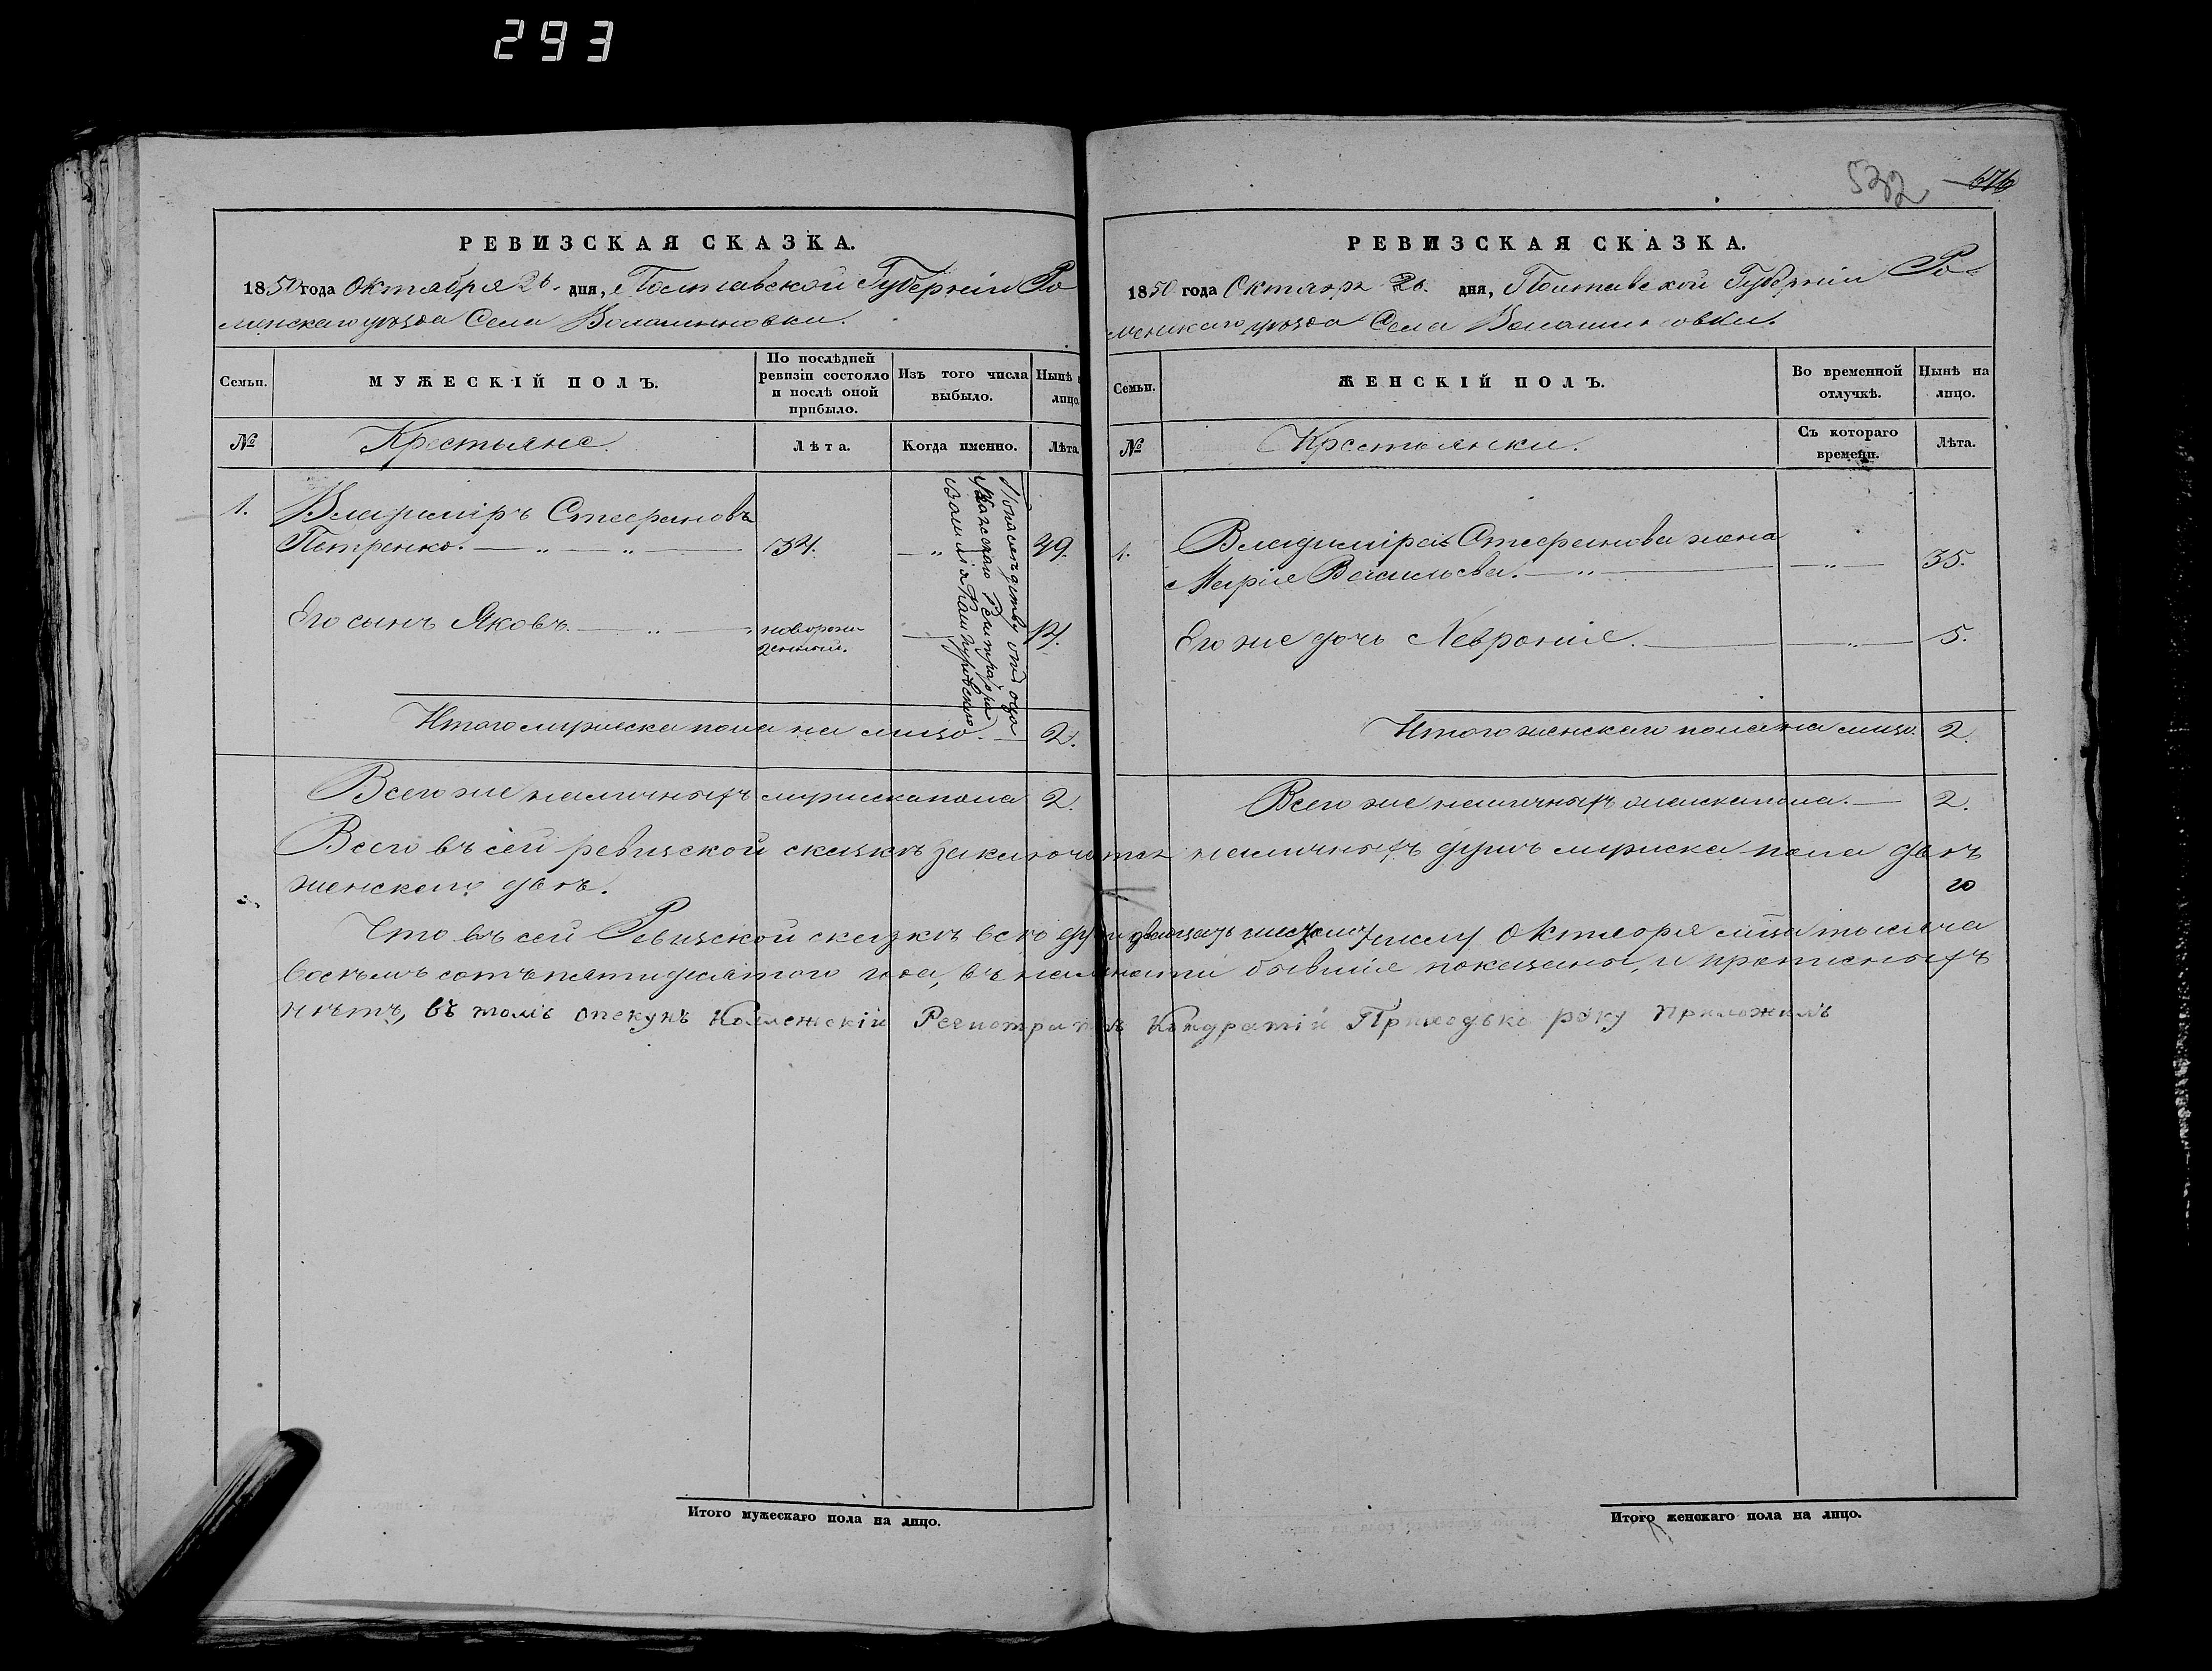 293
532 576
РЕВИЗСКАЯ СКАЗКА.
1850 года Октября 26. дня, Полтавской Губерніи Ро
менскаго уѣзда Села Волошиновки.
Семьи.
МУЖЕСКІЙ ПОЛЪ.
По послѣдней ревизіи состояло и послѣ оной прибыло.
Изъ того числа выбыло.
Нынѣ на лицо.
№
Крестьяне.
Лѣта.
Когда именно.
Лѣта
1.
Владиміръ Стефановъ
Петренко. 34. 49.
Его сынъ Яковъ. новорож-
денный. 14.
По наслѣдству отъ отца
Коллежскаго Регистратора
Итого мужеска пола на лицо. 2.
Всего же наличныхъ мужеска пола 2.
РЕВИЗСКАЯ СКАЗКА.
1850 года Октября 26. дня, Полтавской Губерніи Ро-
менскаго уѣзда Села Волошиновки.
Семьи.
ЖЕНСКІЙ ПОЛЪ.
Во временной отлучкѣ.
Нынѣ на лицо.
№
Крестьянки.
Съ котораго времени.
Лѣта.
1.
Владиміра Стефанова жена
Марія Васильева. 35.
Его же дочь Хевронія. 5.
Итого женскаго пола на лицо. 2.
Всего же наличныхъ женска пола. 2.
Всего въ сей ревизской сказкѣ заключается наличныхъ душъ мужеска пола двѣ
женскаго двѣ.
Что въ сей Ревизской сказкѣ всѣ души двадцать шестому числу Октября мѣсяца тысяча
восемь сотъ пятидесятого года, въ наличности бывшіе показаны, и прописныхъ
нѣтъ, въ томъ опекунъ Коллежскій Регистраторъ Кондратій Приходько руку приложилъ
Итого мужескаго пола на лицо.
Итого женскаго пола на лицо.